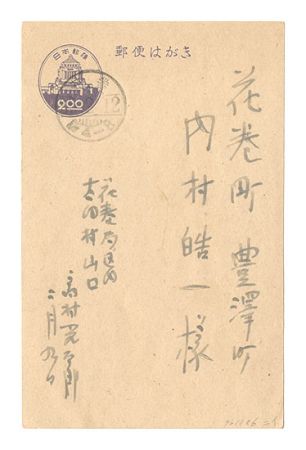 郵便はがき
日本郵便
2.00
12
花巻町 豊澤町
内村皓一様
花巻局区内
太田村山口
高村光太郎
二月九日